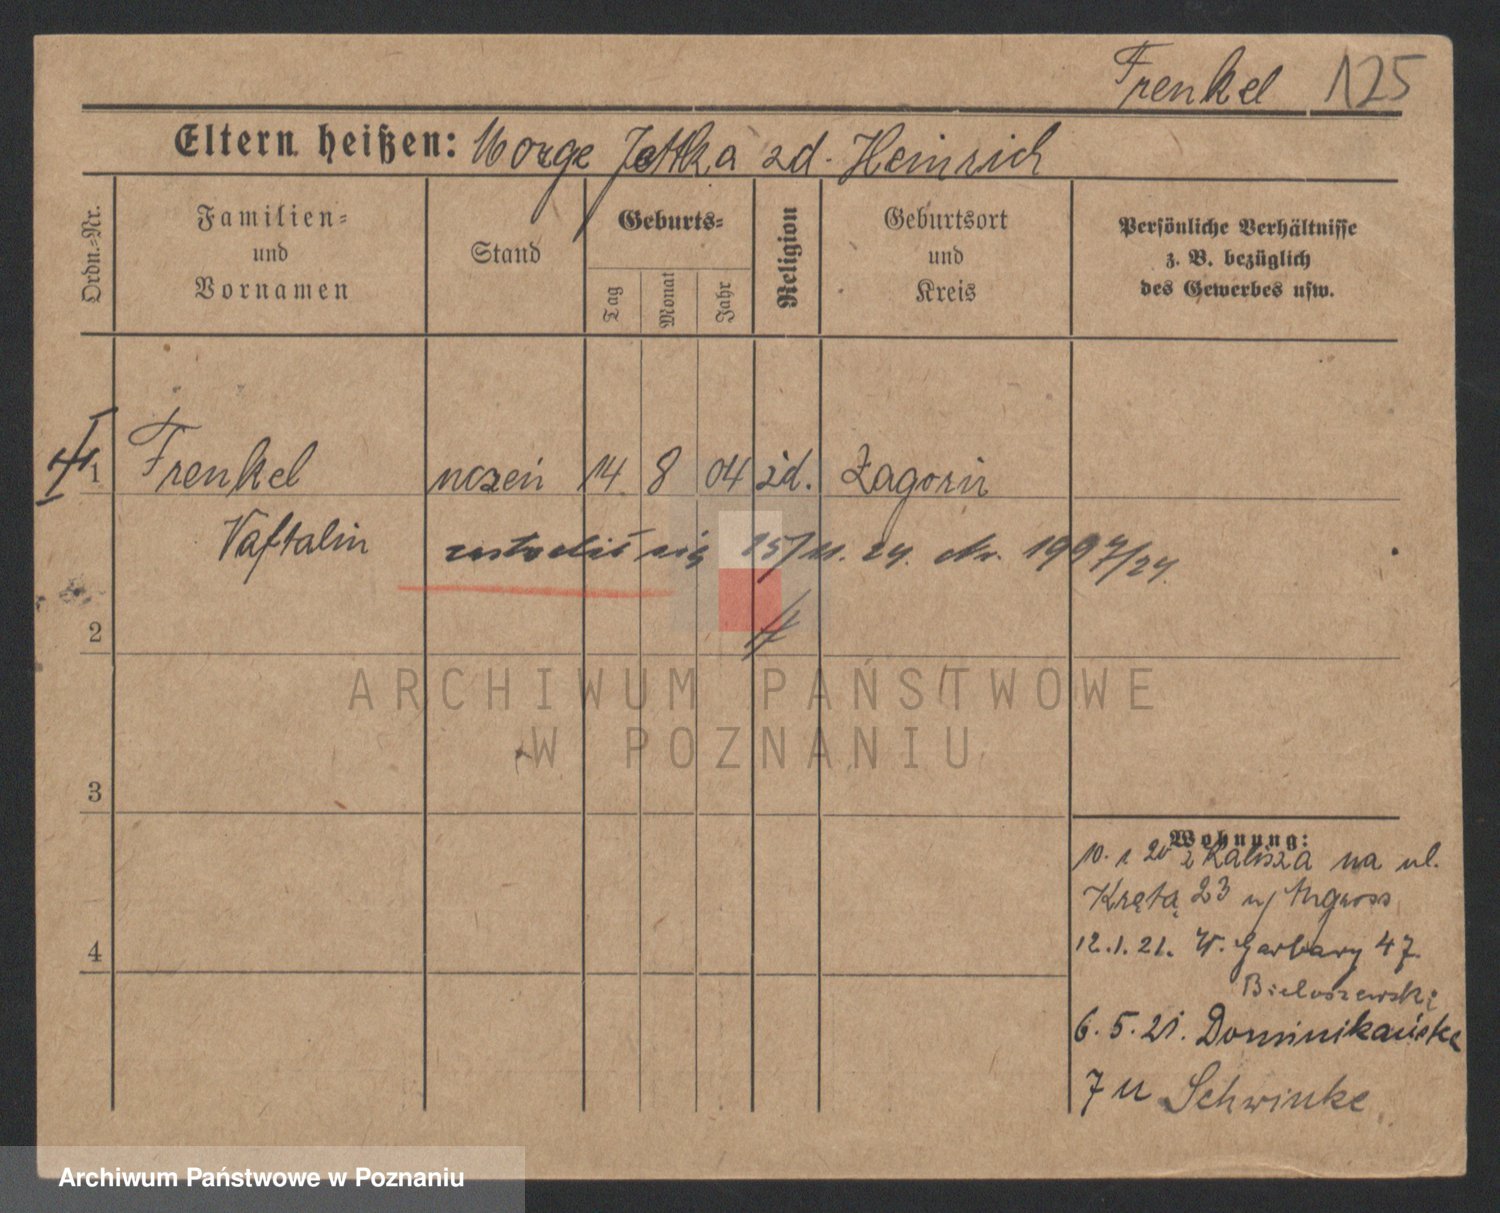 Frenkel 125
Eltern heißen: Morge Jettka zd. Heinrich
Ordn.-Nr.
Familien-
und
Vornamen
Stand
Geburts-
Tag
Monat
Jahr
Religion
Geburtsort
und
Kreis
Persönliche Verhältnisse
z. B. bezüglich
des Gewerbes usw.
1 Frenkel uczeń 14 8 04 żd. Zagorów
Naftalin 15/11. 24. Nr. 1997/24.
2
ARCHIWUM PAŃSTWOWE
W POZNANIU
3
4
Wohnung:
10. 1 20 z Kalisza na ul.
Krętą 23 u/ Angress
12.1.21. W. Garbary 47.
Bieloszewski
6. 5. 21. Dominikańska
7 u Schwinke
Archiwum Państwowe w Poznaniu